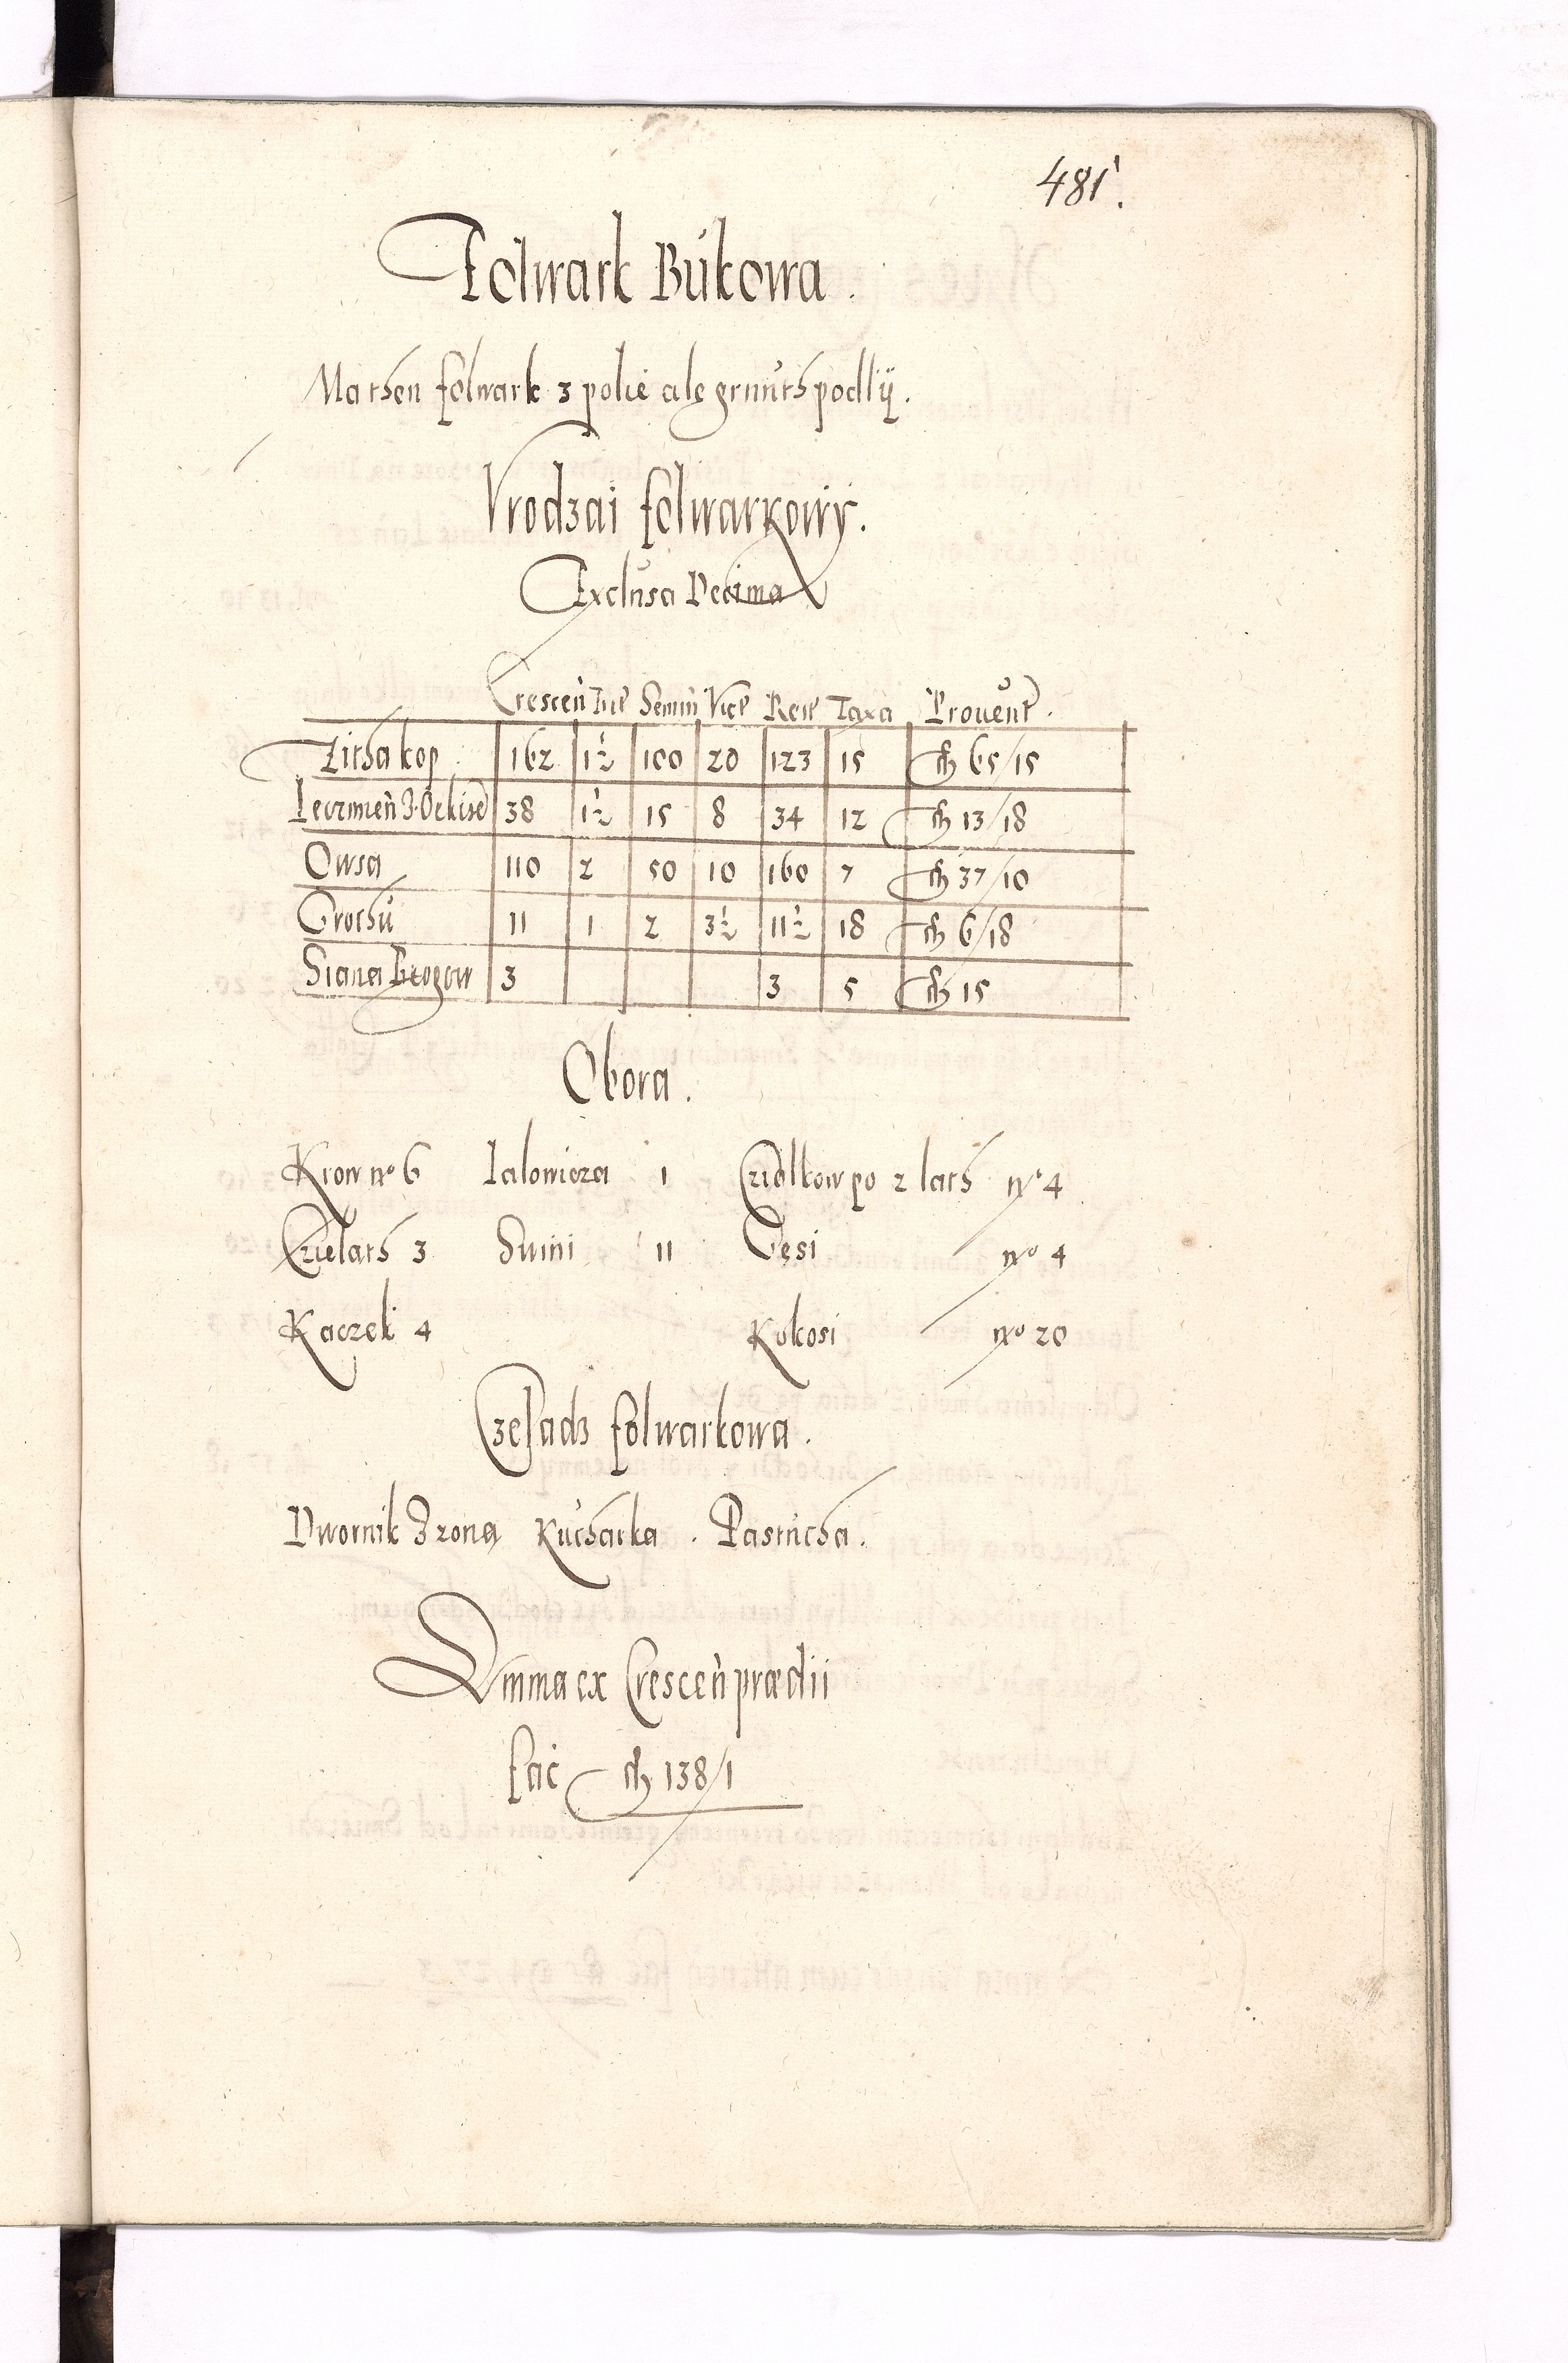 481.
Folwark Bukowa.
Ma then folwark 3 polie ale grunth podlÿ.
Vrodzai folwarkowÿ.
Exclusa Decima
Crescen Semin Vice Rest Taxa Prouent.
Zitha kop 162 1½ 100 20 123 15 fl 65/15
Ieczmień Z Orkise 38 1½ 15 8 34 12 fl 13/18
Owsa 110 2 50 10 160 7 fl 37/10
Grochu 11 1 2 3½ 11½ 18 fl 6/18
Siana Brogow 3 3 5 fl 15
Obora.
Krow no 6 Ialowicza 1 Cziolkow po 2 lath no 4
Czielath 3 Swini 11 Gęsi no 4
Kaczek 4 Kokosi no 20
Czeladz folwarkowa.
Dwornik Z zoną Kucharka. Pastucha.
Summa ex Crescen prædii
fac fl 138/1